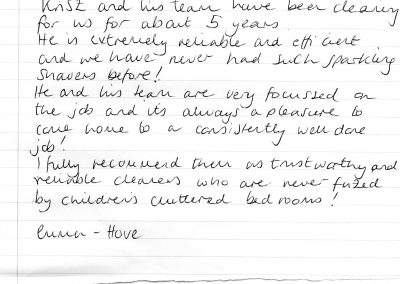 Krist and his team have been cleaning
for us for about 5 years
He is extremely reliable and efficient
and we have never had such sparkling
showers before!
He and his team are very focussed on
the job and its always a pleasure to
come home to a consistently well done
job!
I fully recommend them as trustworthy and
reliable cleaners who are never fazed
by childrens cluttered bedrooms!
Emma - Hove